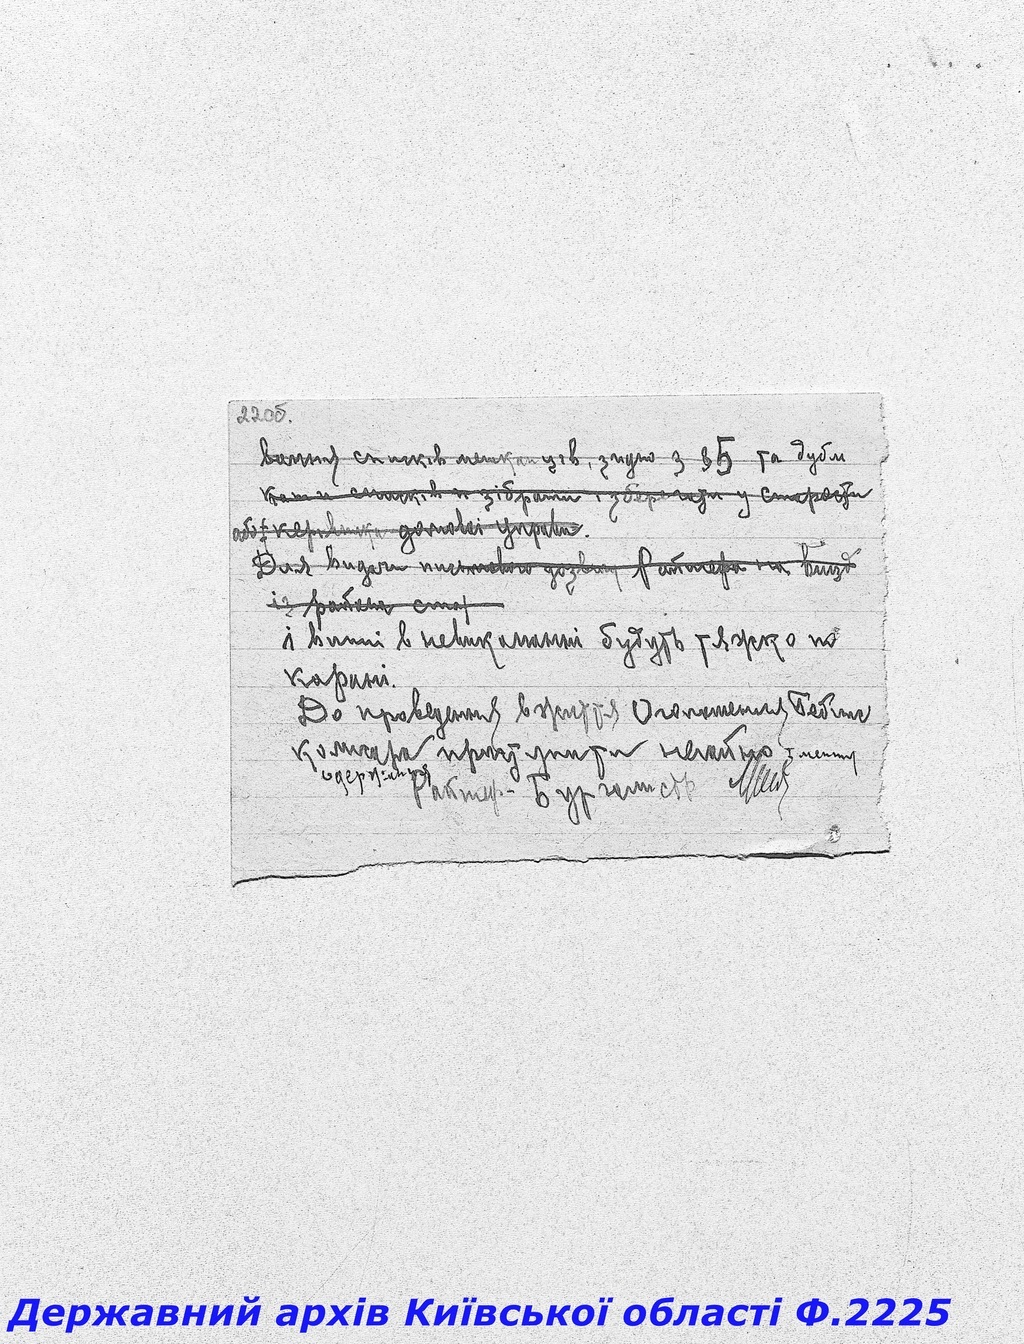 22об.
вання списків мешканців, згідно з §5 та дубл
кати списків зібрати і зберегати у старости
або керівника домової управи.
Для видачи письмового дозвілу Райшефа на виїзд
із района
і винні в невиконанні будуть тяжко по
карані.
До проведення в життя Оголошення Гебітс
комісара приступити негайно
одержання
Райшеф- Бургомістр
Державний архів Київської області Ф.2225